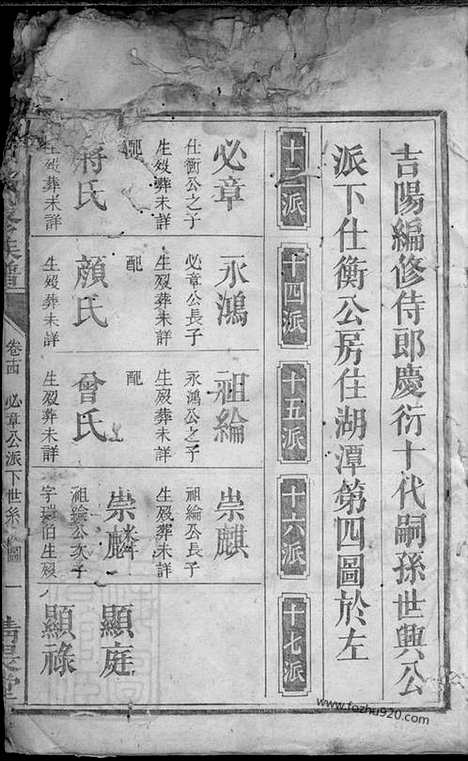 吉陽編修侍郎慶衍十代嗣孫世興公
派下仕衡公房住湖潭第四圖於左
十三派
十四派
十五派
十六派
十七派
必章
仕衡公之子
生歿葬未詳
配
蔣氏
生歿葬未詳
永鴻
必章公長子
生歿葬未詳
配
顏氏
生歿葬未詳
祖綸
永鴻公之子
生歿葬未詳
配
曾氏
生歿葬未詳
崇麒
祖綸公長子
生歿葬未詳
崇麟
祖綸公次子
字瑞伯生歿
顯庭
顯祿
族譜
卷十四
必章公派下世系圖
一
堂
www.fozhu920.com